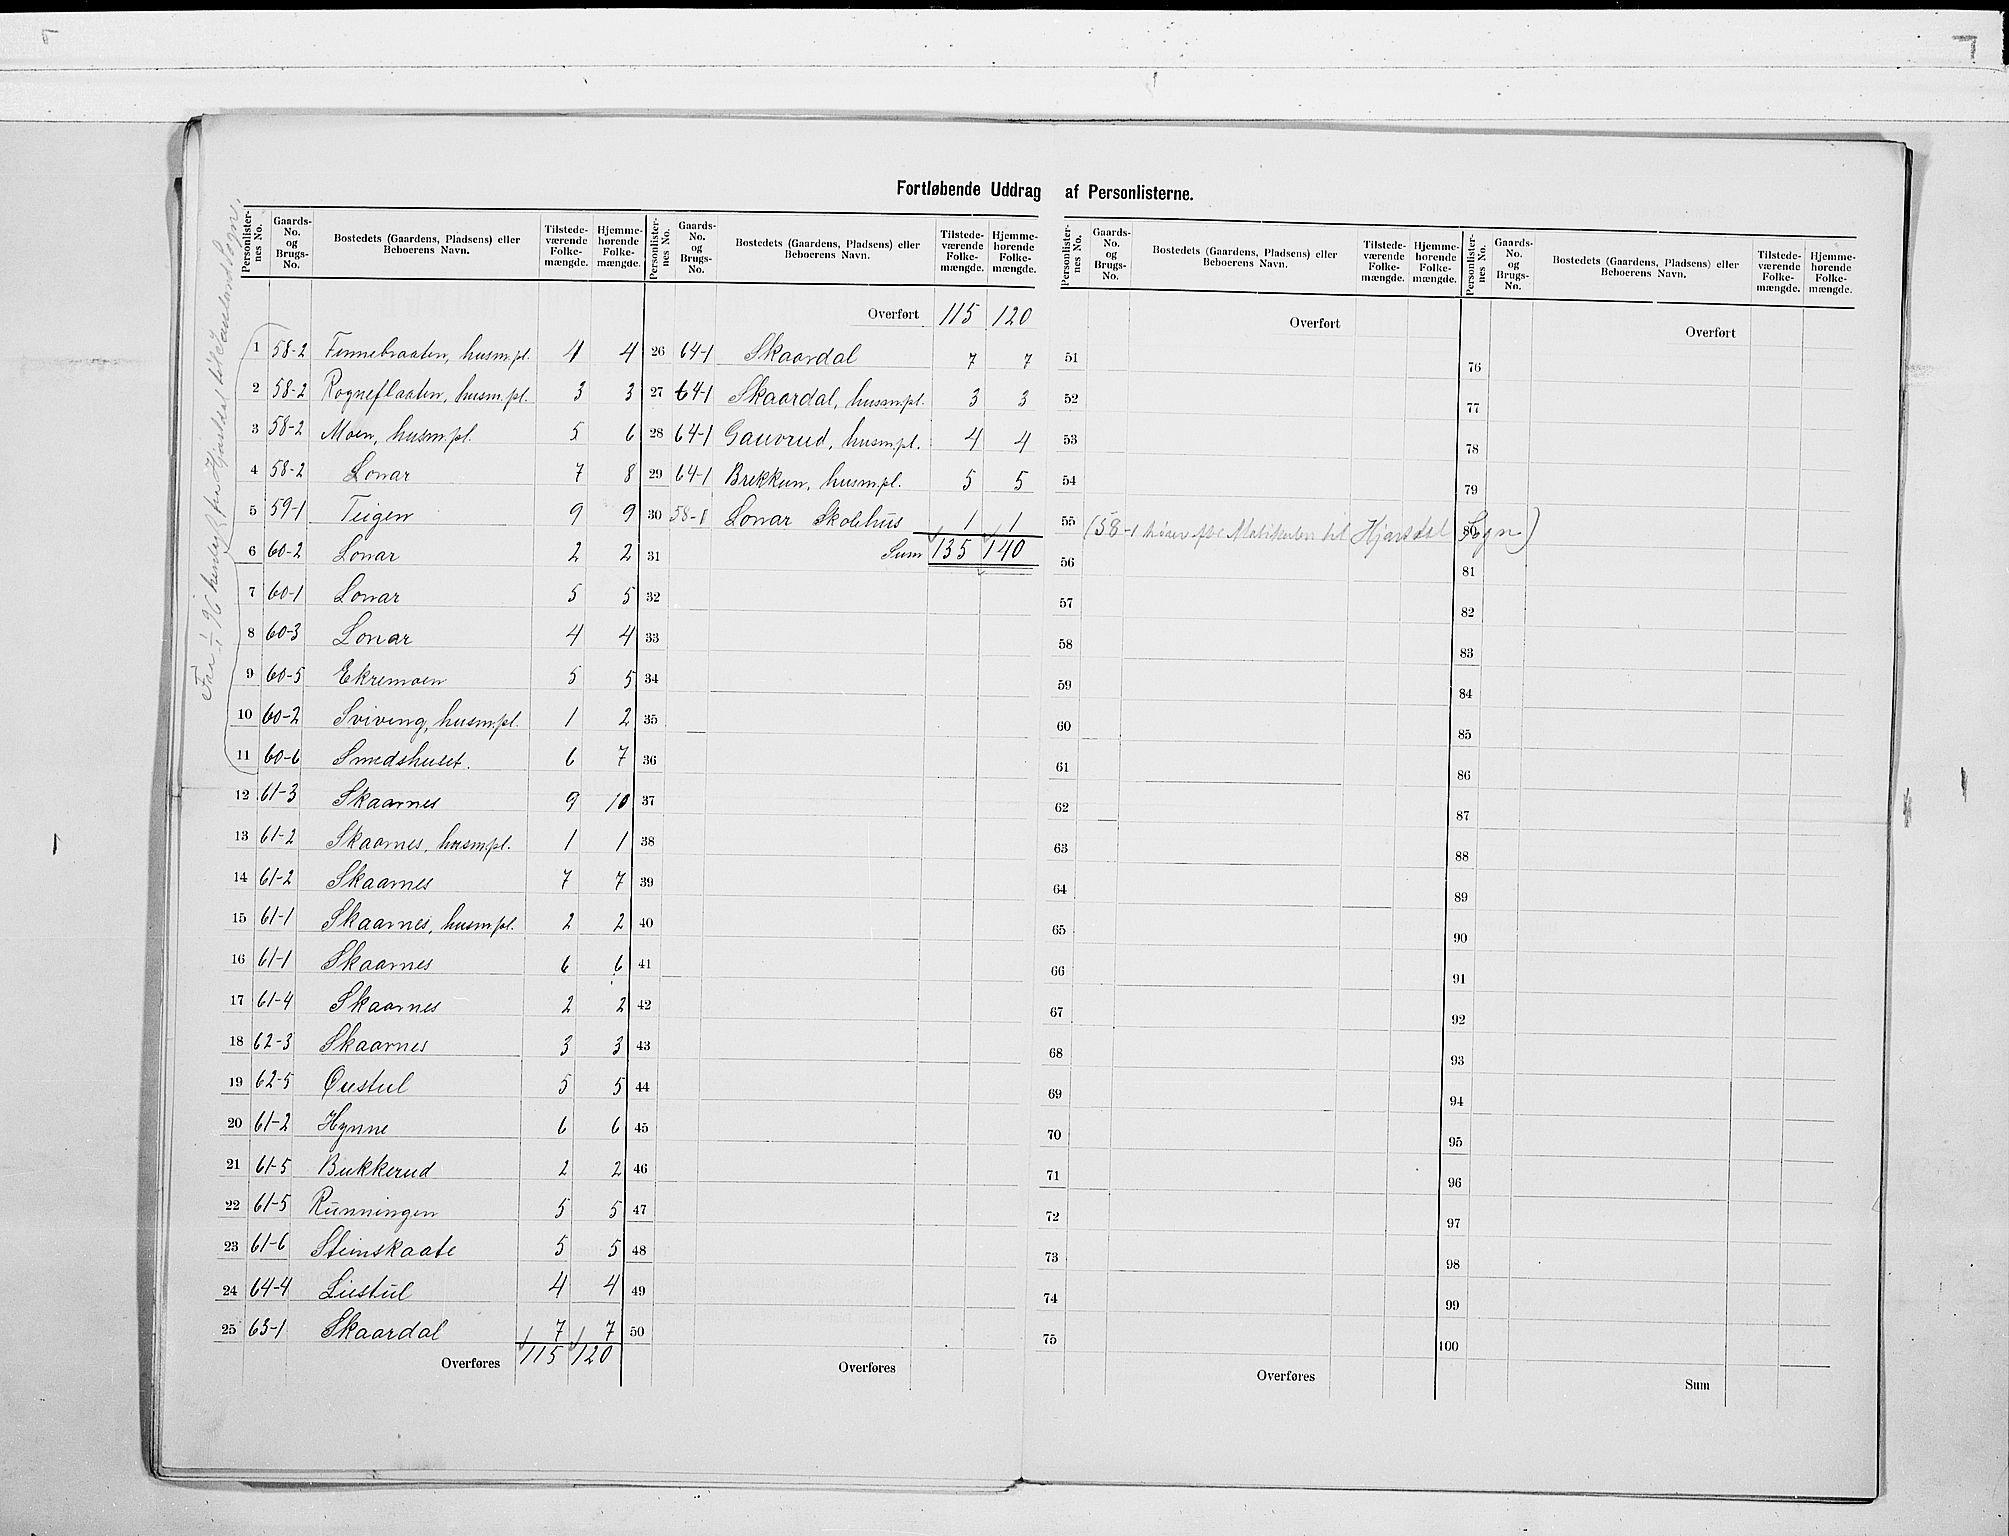 Fortløbende Uddrag af Personlisternes.
Personlister-nes No. | Gaards-No. og Brugs-No. | Bostedets (Gaardens, Pladsens) eller Beboerens Navn. | Tilstede-værende Folke-mængde. | Hjemme-hørende Folke-mængde.
1 58-2 Finnebraaten, husm.pl. 4 4
2 58-2 Rogneflaaten, husm.pl. 3 3
3 58-2 Moen, husm.pl. 5 6
4 58-2 Lonar 7 8
5 59-1 Teigen 9 9
6 60-2 Lonar 2 2
7 60-1 Lonar 5 5
8 60-3 Lonar 4 4
9 60-5 Ekremoen 5 5
10 60-2 Sviving, husm.pl. 1 2
11 60-6 Smedshulet. 6 7
12 61-3 Skaarnes 9 10
13 61-2 Skaarnes, husm.pl. 1 1
14 61-2 Skaarnes 7 7
15 61-1 Skaarnes, husm.pl. 2 2
16 61-1 Skaarnes 6 6
17 61-4 Skaarnes 2 2
18 62-3 Skaarnes 3 3
19 62-5 Øustul 5 5
20 61-2 Hynne 6 6
21 61-5 Bukkerud 2 2
22 61-5 Runningen 5 5
23 61-6 Steinskaate 5 5
24 64-4 Liestul 4 4
25 63-1 Skaardal 7 7
Overføres 115 120
Fra 1/1 96 henlagt fra Hjartdal til Tuddal Sogn.
Personlister-nes No. | Gaards-No. og Brugs-No. | Bostedets (Gaardens, Pladsens) eller Beboerens Navn. | Tilstede-værende Folke-mængde. | Hjemme-hørende Folke-mængde.
Overført 115 120
26 64-1 Skaardal 7 7
27 64-1 Skaardal, husm.pl. 3 3
28 64-1 Gauvrud, husm.pl. 4 4
29 64-1 Brekkun, husm.pl. 5 5
30 58-1 Lonar Skolehus 1 1
31 Sum 135 140
32
33
34
35
36
37
38
39
40
41
42
43
44
45
46
47
48
49
50
Overføres
Personlister-nes No. | Gaards-No. og Brugs-No. | Bostedets (Gaardens, Pladsens) eller Beboerens Navn. | Tilstede-værende Folke-mængde. | Hjemme-hørende Folke-mængde.
Overført
51
52
53
54
55 (58-1 hører efter Matrikulen til Hjartdal Sogn)
56
57
58
59
60
61
62
63
64
65
66
67
68
69
70
71
72
73
74
75
Overføres
Personlister-nes No. | Gaards-No. og Brugs-No. | Bostedets (Gaardens, Pladsens) eller Beboerens Navn. | Tilstede-værende Folke-mængde. | Hjemme-hørende Folke-mængde.
Overført
76
77
78
79
80
81
82
83
84
85
86
87
88
89
90
91
92
93
94
95
96
97
98
99
100
Sum